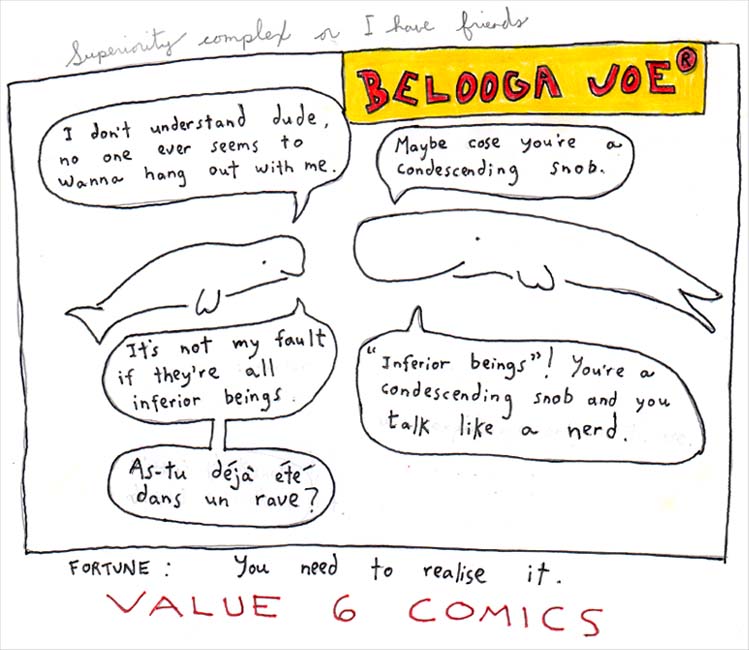 Superiority complex or I have friends
BELOOGA JOE®
I don't understand dude,
no one ever seems to
wanna hang out with me.
Maybe cose you're a
condescending snob.
It's not my fault
if they're all
inferior beings.
"Inferior beings"! You're a
condescending snob and you
talk like a nerd.
As-tu déjà été
dans un rave?
FORTUNE: You need to realise it.
VALUE 6 COMICS